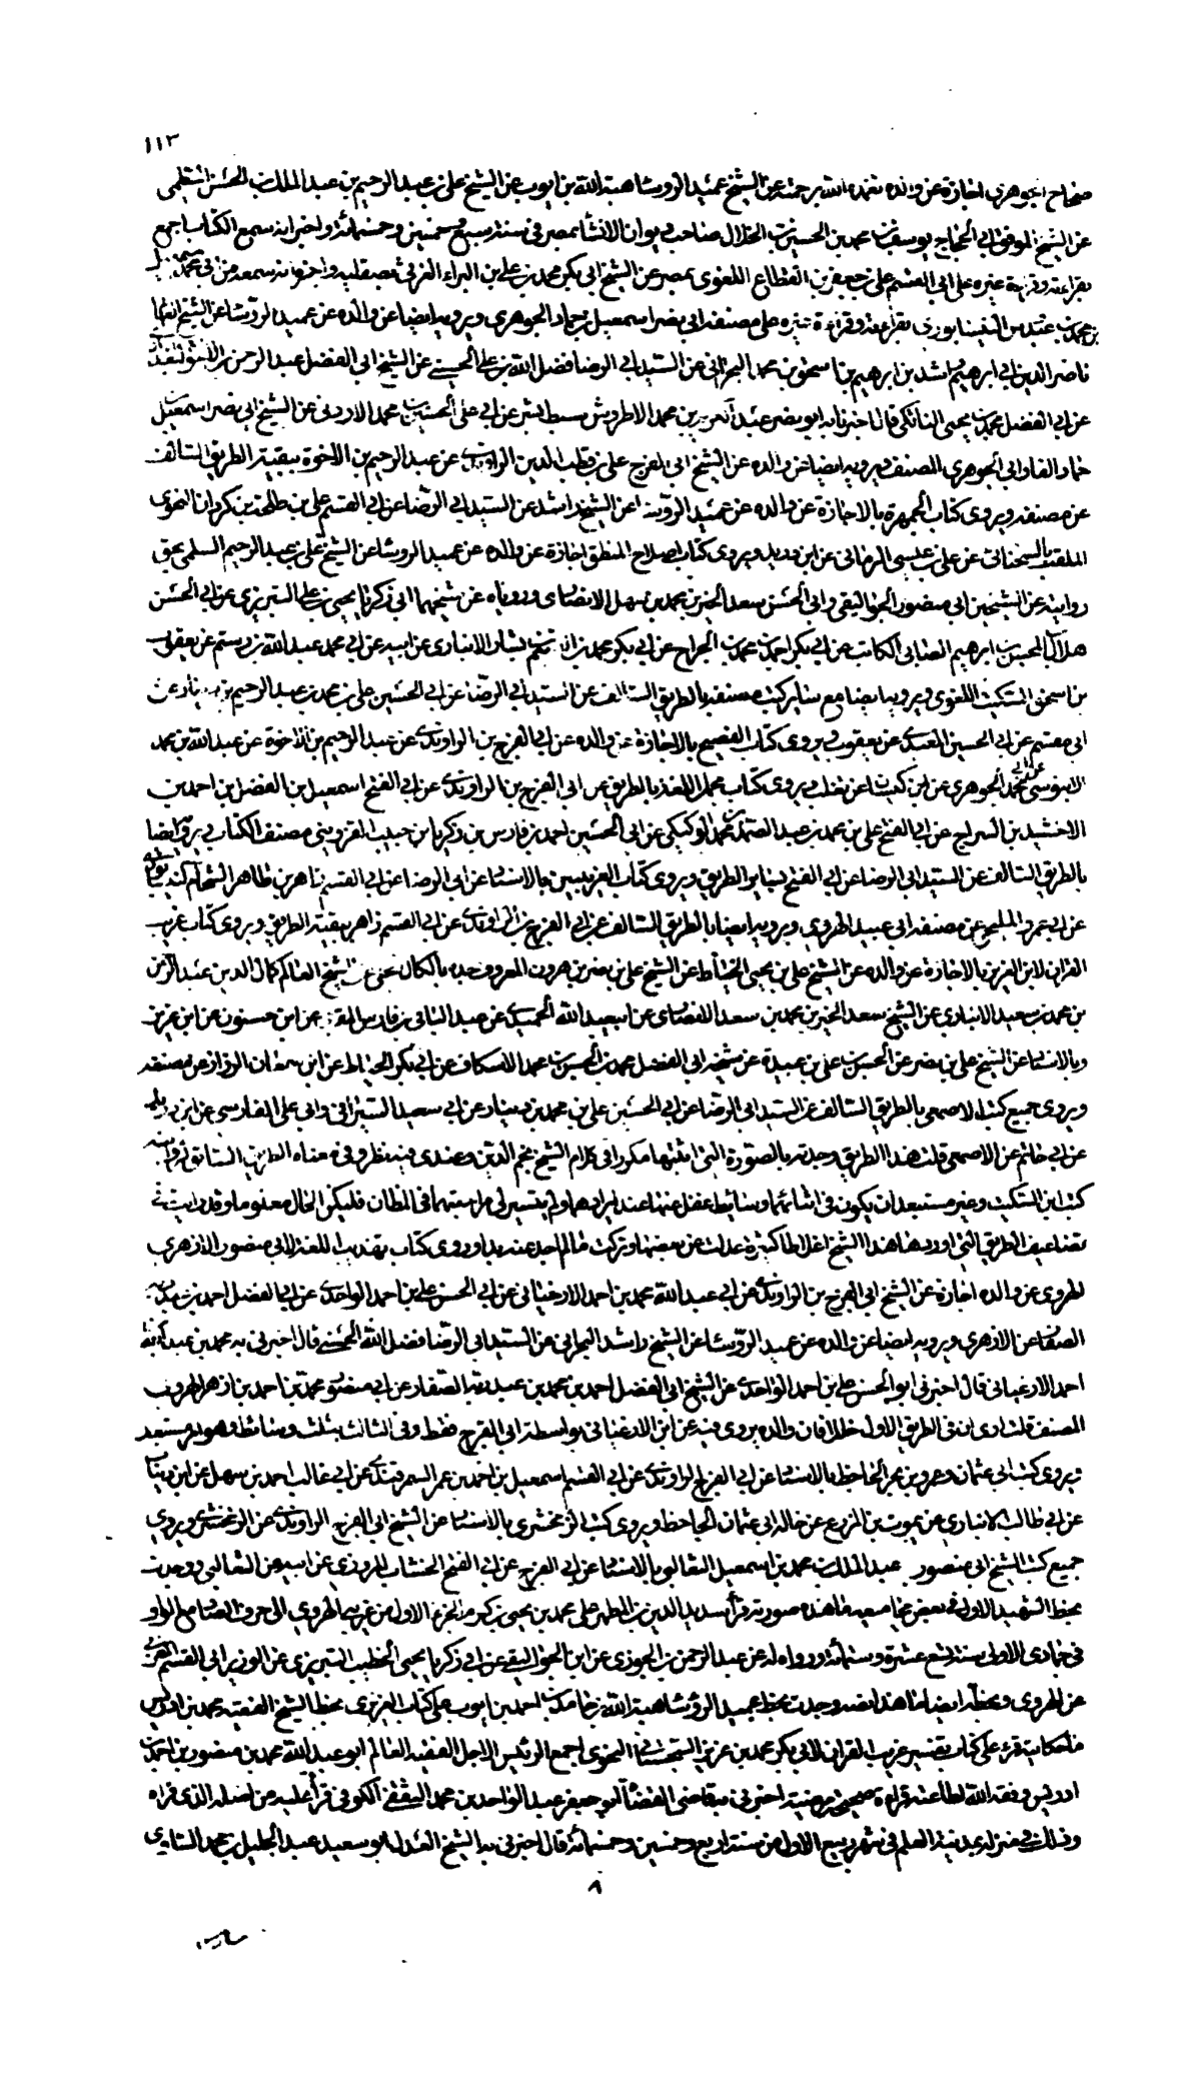 ١١٣
صحاح الجوهري اجازة عن والده تغمده الله برحمته عن الشيخ عميد الرؤساء هبة الله بن ايوب عن الشيخ علي بن عبد الرحيم بن عبد الملك بن الحسن السلمي
عن الشيخ الموفق ابي الحجاج يوسف بن محمد بن الحسين بن الخلال صاحب ديوان الانشاء بمصر في سنة سبع وخمسين وخمسمائة واخبر انه سمع الكتاب اجمع
بقراءته وقراءة غيره على ابي القسم علي بن جعفر بن القطاع اللغوي بمصر عن الشيخ ابي بكر محمد بن علي بن البراء الغزي بصقلية واخبر انه سمعه من ابي محمد اسمعيل
بن محمد بن عبدس النيسابوري بقراءته وقراءة غيره على مصنفه ابي نصر اسمعيل بن حماد الجوهري ويرويه ايضا عن والده عن عميد الرؤساء عن الشيخ
ناصر الدين ابي ابراهيم راشد بن ابراهيم بن اسحق بن محمد البحراني عن السيد ابي الرضا فضل الله بن علي الحسيني عن الشيخ ابي الفضل عبد الرحمن بن الاخوة البغدادي
عن ابي الفضل محمد بن يحيى الناتكي قال اخبرنا به ابو نصر عبد العزيز بن محمد الاطروش سبط بشر عن ابي علي الحسين بن محمد الاردني عن الشيخ ابي نصر اسمعيل بن
حماد الفارابي الجوهري المصنف ويرويه ايضا عن والده عن الشيخ ابي الفرج علي بن قطب الدين الراوندي عن عبد الرحيم بن الاخوة ببقية الطريق السالف
عن مصنفه ويروي كتاب الجمهرة بالاجازة عن والده عن عميد الرؤساء عن الشيخ راشد عن السيد ابي الرضا عن ابي القسم علي بن طلحة بن كردان النحوي
الملقب بالسحناتي عن علي بن عيسى الرماني عن ابن دريد ويروي كتاب اصلاح المنطق اجازة عن والده عن عميد الرؤساء عن الشيخ علي بن عبد الرحيم السلمي بحق
روايته عن الشيخين ابي منصور الجواليقي وابي الحسن سعد الخير بن محمد بن سهل الانصاري ورويا عن شيخهما ابي زكريا يحيى بن علي التبريزي عن ابي الحسن
هلال بن المحسن بن ابرهيم الصابي الكاتب عن ابي بكر احمد بن محمد بن الجراح عن ابي بكر محمد بن القسم بن بشار الانباري عن ابيه عن ابي محمد عبد الله بن رستم عن يعقوب
بن اسحق السكيت اللغوي ويرويه ايضا مع سائر كتب مصنفه بالطريق السالف عن السيد ابي الرضا عن ابي الحسين علي بن محمد بن عبد الرحيم بن دينار عن
ابي مقسم عن ابي الحسين العبدي عن يعقوب ويروي كتاب الفصيح بالاجازة عن والده عن ابي الفرج بن الراوندي عن عبد الرحيم بن الاخوة عن عبد الله بن محمد
الابنوسي عن ابي محمد الجوهري عن ابن كيسان عن ثعلب ويروي كتاب مجمل اللغة بالطريق عن ابي الفرج بن الراوندي عن ابي الفتح اسمعيل بن الفضل بن احمد بن
الاخشيد بن السراج عن ابي الفتح علي بن محمد بن عبد الصمد بن محمد الوكيكي عن ابي الحسين احمد بن فارس بن زكريا بن حبيب القزويني مصنف الكتاب ويرويه ايضا
بالطريق السالف عن السيد ابي الرضا عن ابي الفتح بسائر الطريق ويروي كتاب الغريبين بالاسناد عن ابي الرضا عن ابي القسم زاهر بن طاهر الشحام النيسابوري
عن ابي عمرو المليحي عن مصنفه ابي عبيد الهروي ويرويه ايضا بالطريق السالف عن ابي الفرج بن الراوندي عن ابي القسم زاهر ببقية الطريق ويروي كتاب غريب
القران لابن العزيز بالاجازة عن والده عن الشيخ علي بن يحيى الخياط عن الشيخ علي بن نصر بن هرون المعروف جده بالكال عن الشيخ العالم كمال الدين عبد الرحمن
بن محمد بن سعيد الانباري عن الشيخ سعد الخير بن محمد بن سعد الانصاري عن ابي عبد الله الحميدي عن عبد الباقي بن فارس المقري عن ابن حسنون عن ابن عزيز
وبالاسناد عن الشيخ علي بن نصر عن الحسن بن علي بن عبيدة عن شيخه ابي الفضل محمد بن الحسن بن محمد الاسكاف عن ابي بكر الخياط عن ابن سمعان الرزاز عن مصنفه
ويروي جميع كتب الاصمعي بالطريق السالف عن السيد ابي الرضا عن ابي الحسين علي بن محمد بن دينار عن ابي سعيد السيرافي وابي علي الفارسي عن ابن دريد
عن ابي حاتم عن الاصمعي قلت هذا الطريق وجدته بالصورة التي اثبتها مكررا في كلام الشيخ نجم الدين وعندي فيه نظر وفي معناه الطريق السابق لرواية
كتب ابن السكيت وغير مستبعد ان يكون في اثنائهما وسائط غفل عنها عند ايرادهما ولم يتيسر لي مراجعتهما في المظان فليكن الحال معلوما وقد رايت في
تضاعيف الطريق التي اوردها هذا الشيخ اغلاطا كثيرة عدلت عن بعضها وتركت ما لم اجد عنه بدا وروى كتاب تهذيب اللغة لابي منصور الازهري
الهروي عن والده اجازة عن الشيخ ابي الفرج بن الراوندي عن ابي عبد الله محمد بن احمد الارغياني عن ابي الحسن علي بن احمد الواحدي عن ابي الفضل احمد بن محمد
الصفار عن الازهري ويرويه ايضا عن والده عن عميد الرؤساء عن الشيخ راشد البحراني عن السيد ابي الرضا فضل الله الحسني قال اخبرني به محمد بن عبد الله بن
احمد الارغياني قال اخبرني ابو الحسن علي بن احمد الواحدي عن الشيخ ابي الفضل احمد بن محمد بن عبد الله الصفار عن ابي منصور محمد بن احمد بن ازهر الهروي
المصنف قلت اري ان في الطريق الاول خللا فان والده يروي فيه عن ابن الارغياني بواسطة ابي الفرج فقط وفي الثالث بثلث وسائط وهو امر مستبعد
ويروي كتب ابي عثمان عمرو بن بحر الجاحظ بالاسناد عن ابي الفرج الراوندي عن ابي القسم اسمعيل بن احمد بن عمر السمرقندي عن ابي غالب احمد بن سهل عن ابن دينار
عن ابي طالب الانباري عن يموت بن المزرع عن خاله ابي عثمان الجاحظ ويروي كتب الزمخشري بالاسناد عن الشيخ ابي الفرج الراوندي عن الزمخشري ويروي
جميع كتب الشيخ ابي منصور عبد الملك بن محمد بن اسمعيل الثعالبي بالاسناد عن ابي الفرج عن ابي الفتح الخشاب المروزي عن ابيه عن الثعالبي ووجدت
بخط الشهيد الاول في بعض مجاميعه ما هذه صورته قرأ سديد الدين بن المطهر على محمد بن يحيى بن كرم الجزء الاول من غريب الهروي الى حرف الصاد مع الواو
في جمادى الاولى سنة تسع عشرة وستمائة ورواه له عن عبد الرحمن بن الجوزي عن ابن الجواليقي عن ابي زكريا يحيى الخطيب التبريزي عن الوزير ابي القسم المغربي
عن الهروي وبخطه ايضا ما هذا لفظه وجدت بخط عميد الرؤساء هبة الله بن حامد بن احمد بن ايوب على كتاب العزيزي بخط الشيخ الفقيه محمد بن ادريس
ما حكايته قرء علي كتاب تفسير غريب القران لابي بكر محمد بن عزيز السجستاني النحوي اجمع الرئيس الاجل الفقيه العالم ابو عبد الله محمد بن منصور بن احمد بن
ادريس وفقه الله لطاعته قراءة صحيحة مرضية اخبرني به قاضي القضاة ابو جعفر عبد الواحد بن محمد الثقفي الكوفي قرأ عليه من اصله الذي قراه
وذلك في منزله بمدينة السلام في شهر ربيع الاول من سنة اربع وخمسين وخمسمائة قال اخبرني به الشيخ العدل ابو سعيد عبد الجليل بن محمد الساوي
٨